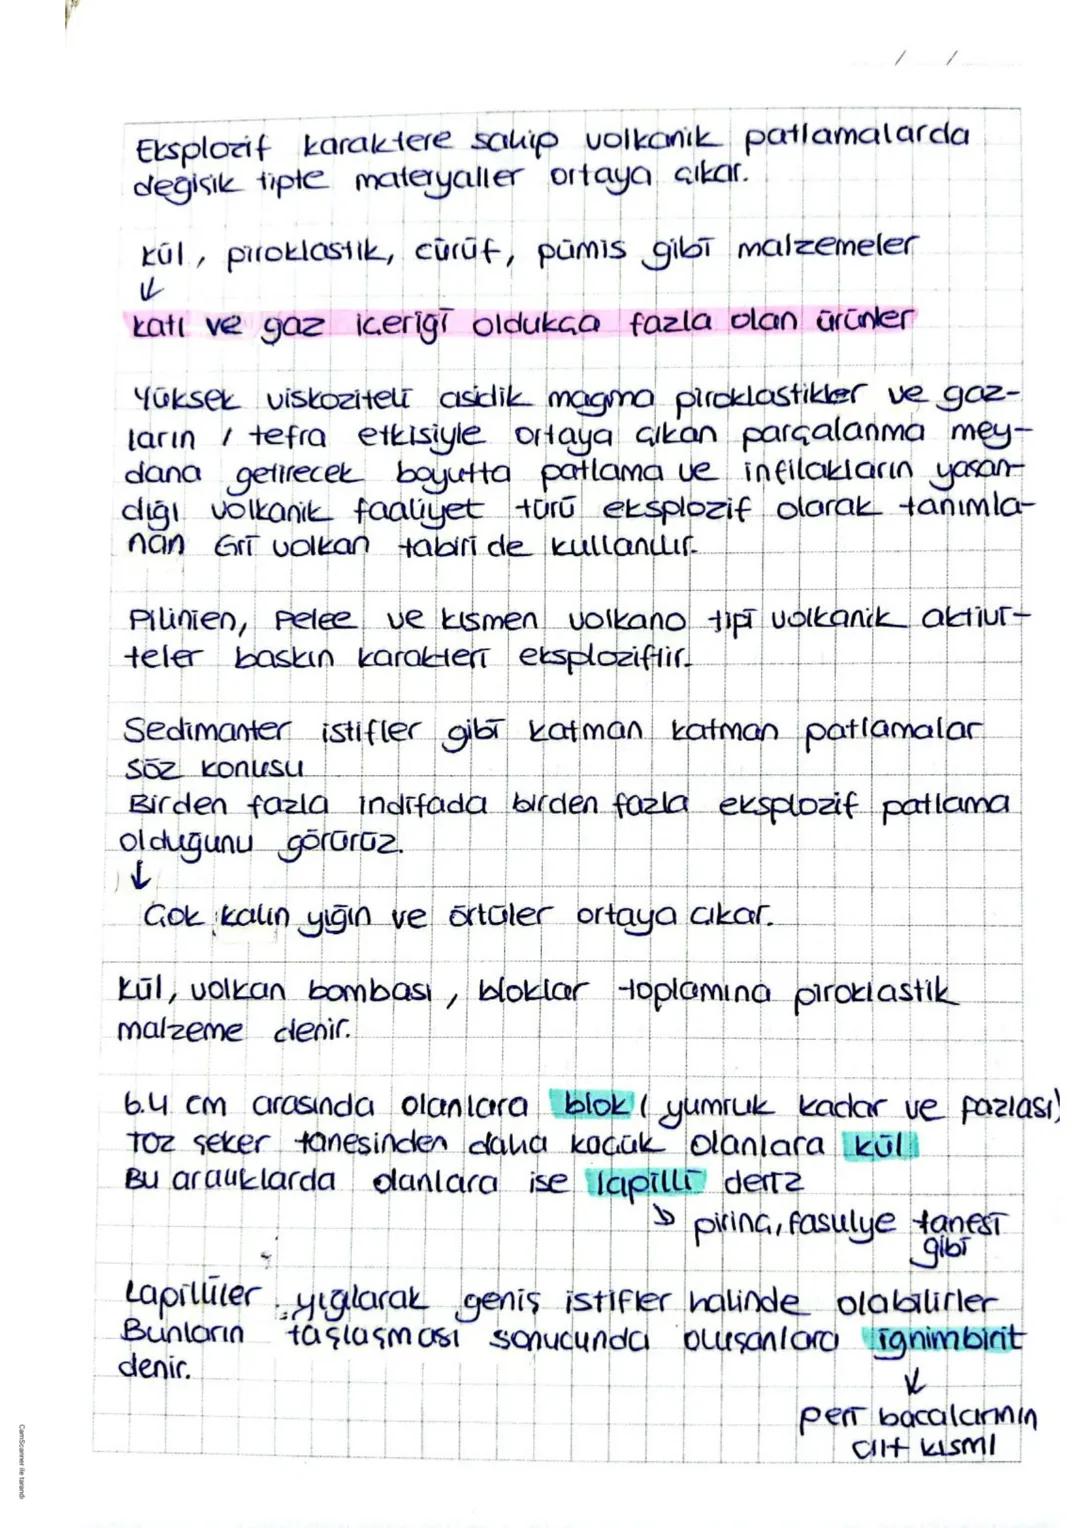 / /
Eksplozif karaktere sahip volkanik patlamalarda
değişik tipte materyaller ortaya çıkar.
kül, piroklastik, cüruf, pümis gibi malzemeler
↓
katı ve gaz içeriği oldukça fazla olan ürünler
Yüksek viskoziteli asidik magma piroklastikler ve gaz-
ların / tefra etkisiyle ortaya çıkan parçalanma mey-
dana getirecek boyutta patlama ve infilakların yaşan-
dığı volkanik faaliyet türü eksplozif olarak tanımla-
nan Gri volkan tabiri de kullanılır.
Pilinien, Pelee ve kısmen volkano tipi volkanik aktivi-
teler baskın karakteri eksploziftir.
Sedimanter istifler gibi katman katman patlamalar
söz konusu
Birden fazla indifada birden fazla eksplozif patlama
olduğunu görürüz.
↓
Çok kalın yığın ve örtüler ortaya çıkar.
Kül, volkan bombası, bloklar toplamına piroklastik
malzeme denir.
6.4 cm arasında olanlara blok (yumruk kadar ve fazlası)
Toz şeker tanesinden daha küçük olanlara kül
Bu aralıklarda olanlara ise lapilli deriz
↳ pirinç, fasulye tanesi
gibi
Lapilliler yığılarak geniş istifler halinde olabilirler
Bunların taşlaşması sonucunda oluşanlara ignimbirit
denir.
↓
peri bacalarının
alt kısmı
CamScanner ile tarandı